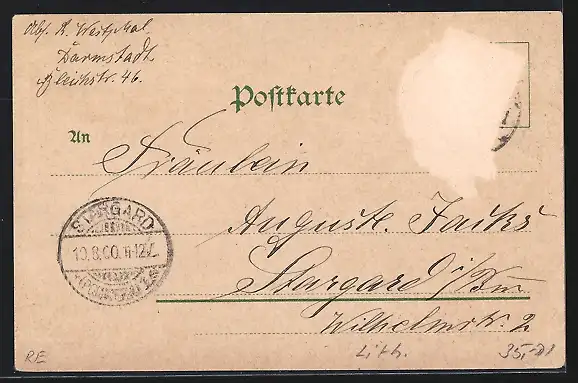 Abs. R. Westphal
Darmstadt
Bleichstr. 46.
Postkarte
An
Fräulein
STARGARD
10.8.00.11-12V.
(POMMERN)
Auguste Jacks
Stargard i/Pom
Wilhelmstr. 2
RE
Lith.
35,-